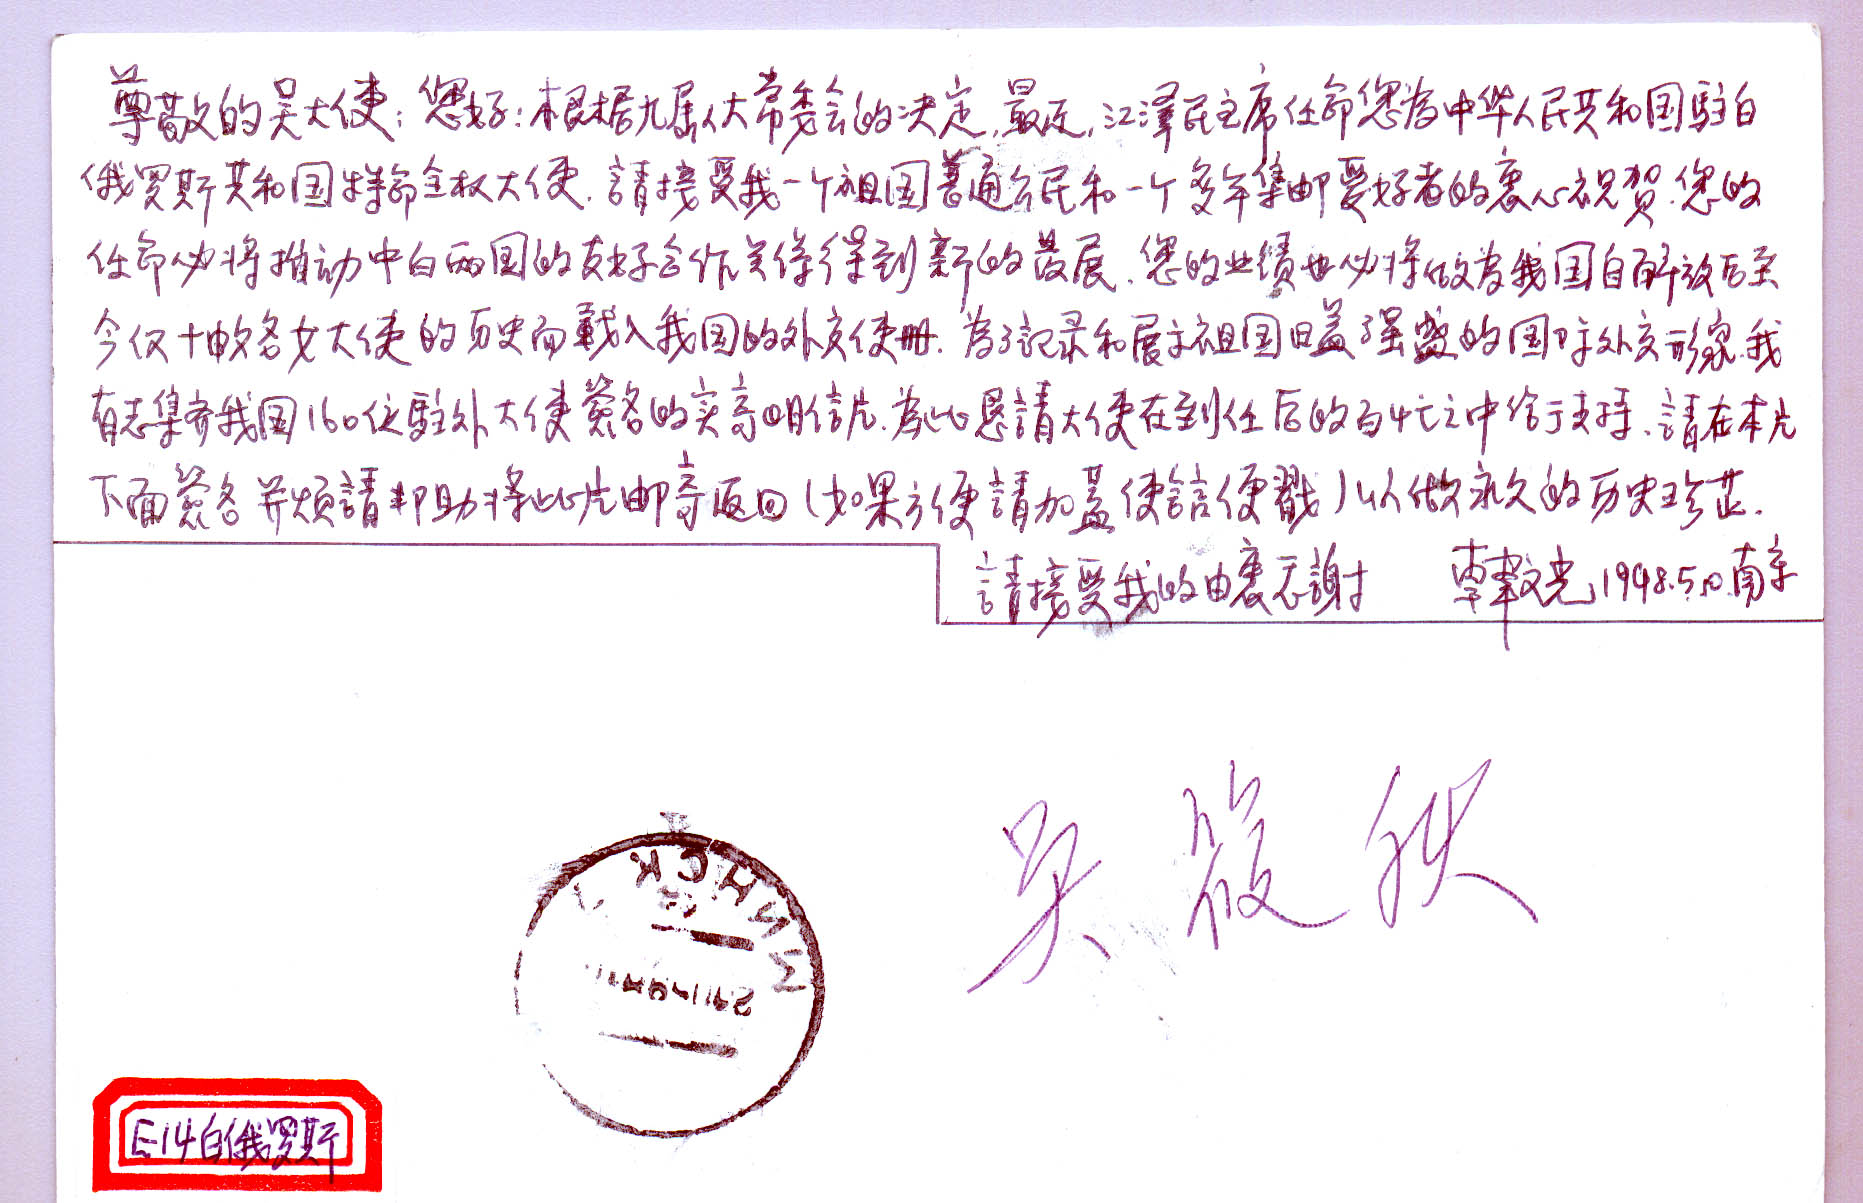 尊敬的吴大使：您好：根据九届人大常委会的决定，最近，江泽民主席任命您為中华人民共和国駐白
俄罗斯共和国特命全权大使．請接受我一个祖国普通公民和一个多年集邮爱好者的衷心祝贺．您的
任命必将推动中白两国的友好合作关係得到新的发展．您的业绩也必将做為我国自解放后至
今仅十数名女大使的历史而載入我国的外交使册．為了記录和展示祖国日益强盛的国际外交形象．我
有志集齐我国160位駐外大使簽名的实寄明信片．為此恳請大使在到任后的百忙之中给于支持．請在本片
下面簽名并烦請帮助将此片邮寄返回（如果方便請加蓋使館便戳）以做永久的历史珍芷．
請接受我的由衷感謝 文光 1998.5.10.南京
吴筱秋
МИНСК
E-14白俄罗斯